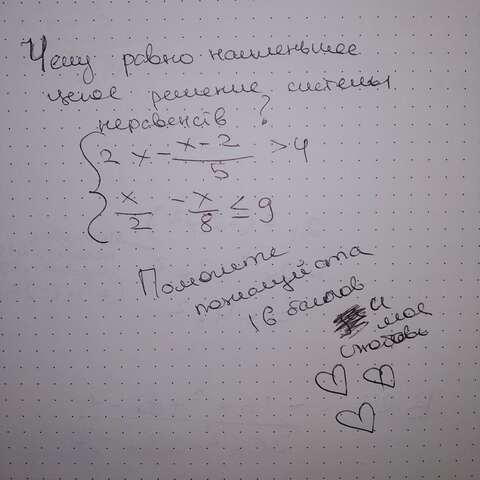 Чему равно наименьшее
целое решение системы
неравенств?
{ 2x - \frac{x-2}{5} > 4
\frac{x}{2} - \frac{x}{8} ≤ 9
Помогите
пожалуйста
16 баллов
и
моя
любовь